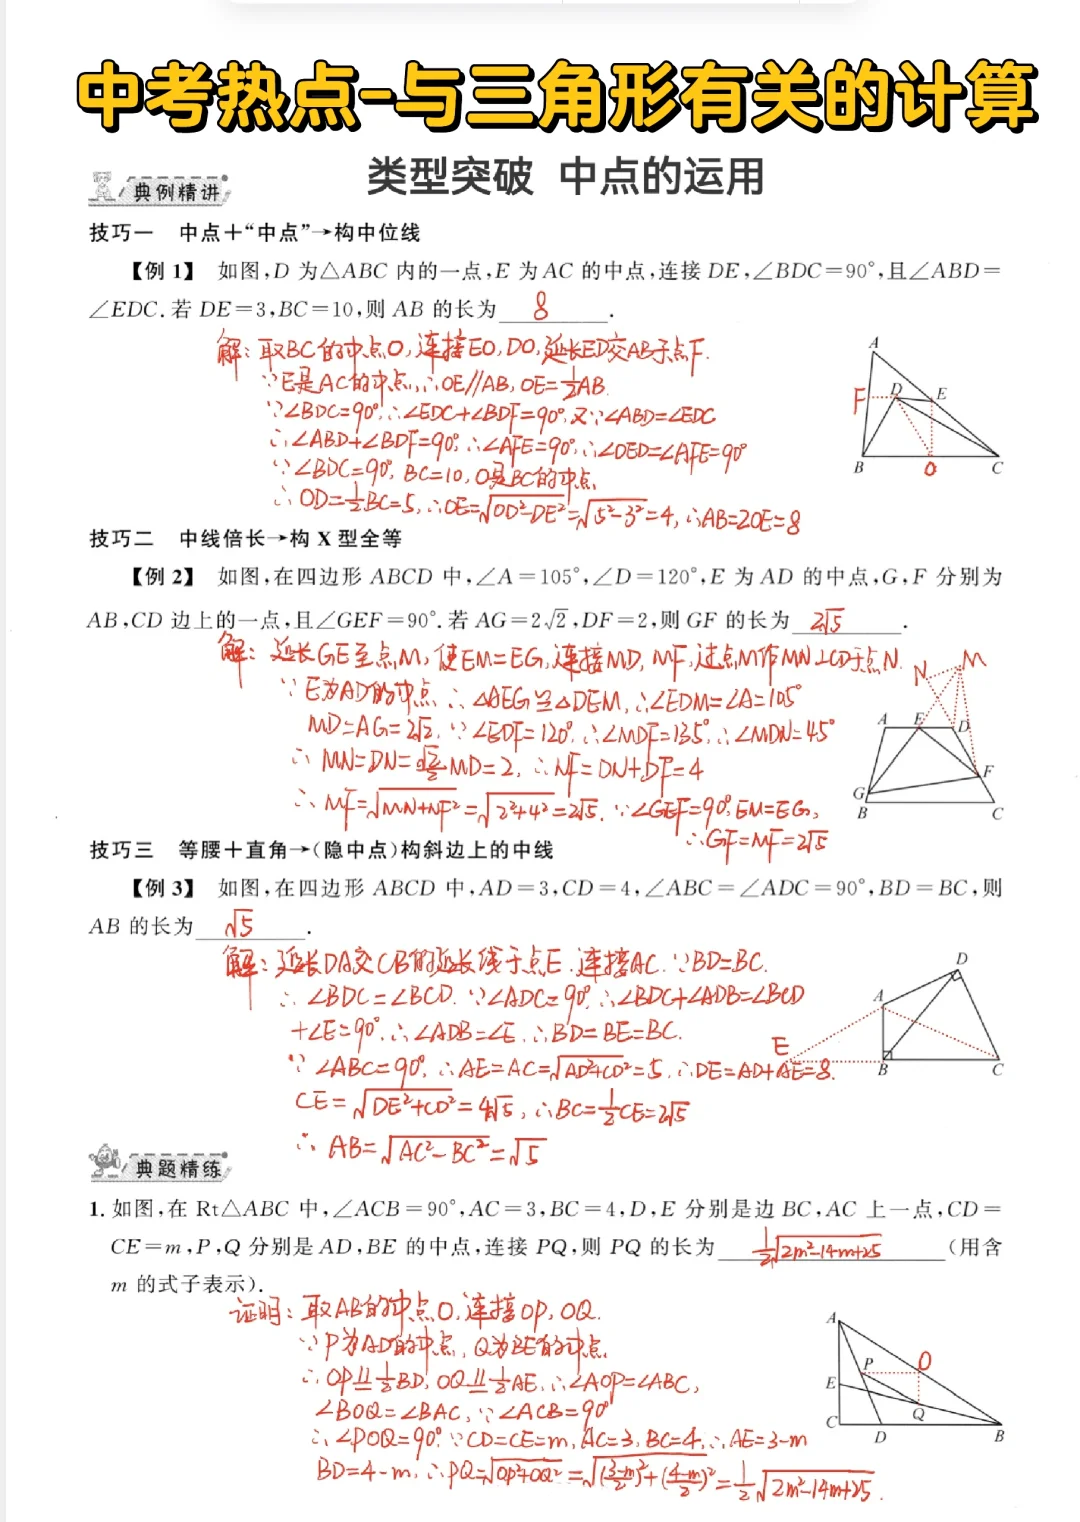 中考热点-与三角形有关的计算
类型突破 中点的运用
典例精讲
技巧一 中点＋“中点”→构中位线
【例1】 如图,D 为△ABC 内的一点,E 为 AC 的中点,连接 DE,∠BDC=90°,且∠ABD=
∠EDC.若 DE=3,BC=10,则 AB 的长为 8 .
解:取BC的中点O,连接EO,DO,延长ED交AB于点F.
∵E是AC的中点,∴OE∥AB,OE=½AB.
∵∠BDC=90°,∴∠EDC+∠BDF=90°,又∵∠ABD=∠EDC
∴∠ABD+∠BDF=90°,∴∠AFE=90°,∴∠OED=∠AFE=90°
∵∠BDC=90°,BC=10,O是BC的中点
∴OD=½BC=5,∴OE=√(OD²-DE²)=√(5²-3²)=4,∴AB=2OE=8
A
F D E
B O C
技巧二 中线倍长→构 X 型全等
【例2】 如图,在四边形 ABCD 中,∠A=105°,∠D=120°,E 为 AD 的中点,G,F 分别为
AB,CD 边上的一点,且∠GEF=90°.若 AG=2√2,DF=2,则 GF 的长为 2√5 .
解:延长GE至点M,使EM=EG,连接MD,MF,过点M作MN⊥CD于点N.
∵E为AD的中点∴△AEG≌△DEM,∴∠EDM=∠A=105°
MD=AG=2√2.∵∠EDF=120°,∴∠MDF=135°,∴∠MDN=45°
∴MN=DN=√2/2MD=2,∴NF=DN+DF=4
∴MF=√(MN+NF²)=√(2²+4²)=2√5.∵∠GEF=90°,EM=EG,
∴GF=MF=2√5
N M
A E D
F
G
B C
技巧三 等腰＋直角→(隐中点)构斜边上的中线
【例3】 如图,在四边形 ABCD 中,AD=3,CD=4,∠ABC=∠ADC=90°,BD=BC,则
AB 的长为 √5 .
解:延长DA交CB的延长线于点E.连接AC.∵BD=BC.
∴∠BDC=∠BCD.∵∠ADC=90°,∴∠BDC+∠ADB=∠BCD
+∠E=90°,∴∠ADB=∠E.∴BD=BE=BC.
∵∠ABC=90°,∴AE=AC=√(AD²+CD²)=5,∴DE=AD+AE=8.
CE=√(DE²+CD²)=4√5,∴BC=½CE=2√5
∴AB=√(AC²-BC²)=√5
D
A
E B C
典题精练
1. 如图,在 Rt△ABC 中,∠ACB=90°,AC=3,BC=4,D,E 分别是边 BC,AC 上一点,CD=
CE=m,P,Q 分别是 AD,BE 的中点,连接 PQ,则 PQ 的长为 ½√(2m²-14m+25) (用含
m 的式子表示).
证明:取AB的中点O,连接OP,OQ.
∵P为AD的中点,Q为BE的中点
∴OP∥=½BD,OQ∥=½AE,∴∠AOP=∠ABC,
∠BOQ=∠BAC,∵∠ACB=90°
∴∠POQ=90°∵CD=CE=m,AC=3,BC=4,∴AE=3-m
BD=4-m,∴PQ=√(OP²+OQ²)=√((3-m/2)²+(4-m/2)²)=½√(2m²-14m+25).
A
P O
E
Q
C D B